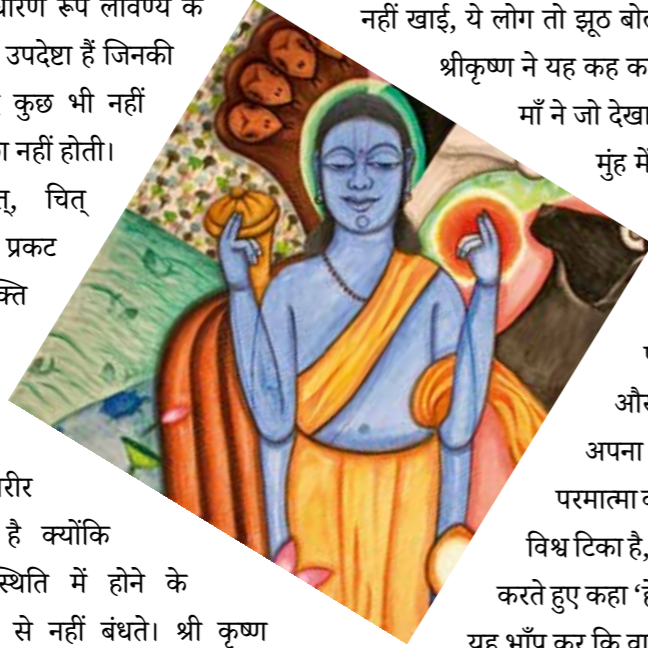 रूप लावण्य के
उपदेष्टा हैं जिनकी
कुछ भी नहीं
नहीं होती।
चित्
प्रकट
है क्योंकि
में होने के
से नहीं बंधते। श्री कृष्ण
नहीं खाई, ये लोग तो झूठ
श्रीकृष्ण ने यह कह
माँ ने जो देखा
मुंह में
अपना
परमात्मा
विश्व टिका है,
करते हुए कहा
यह भाँप कर कि